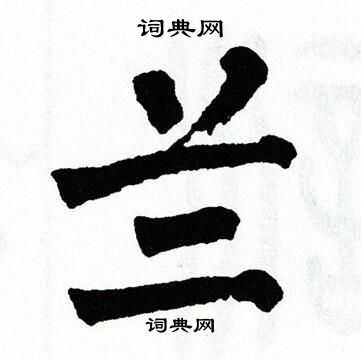 词典网
兰
词典网